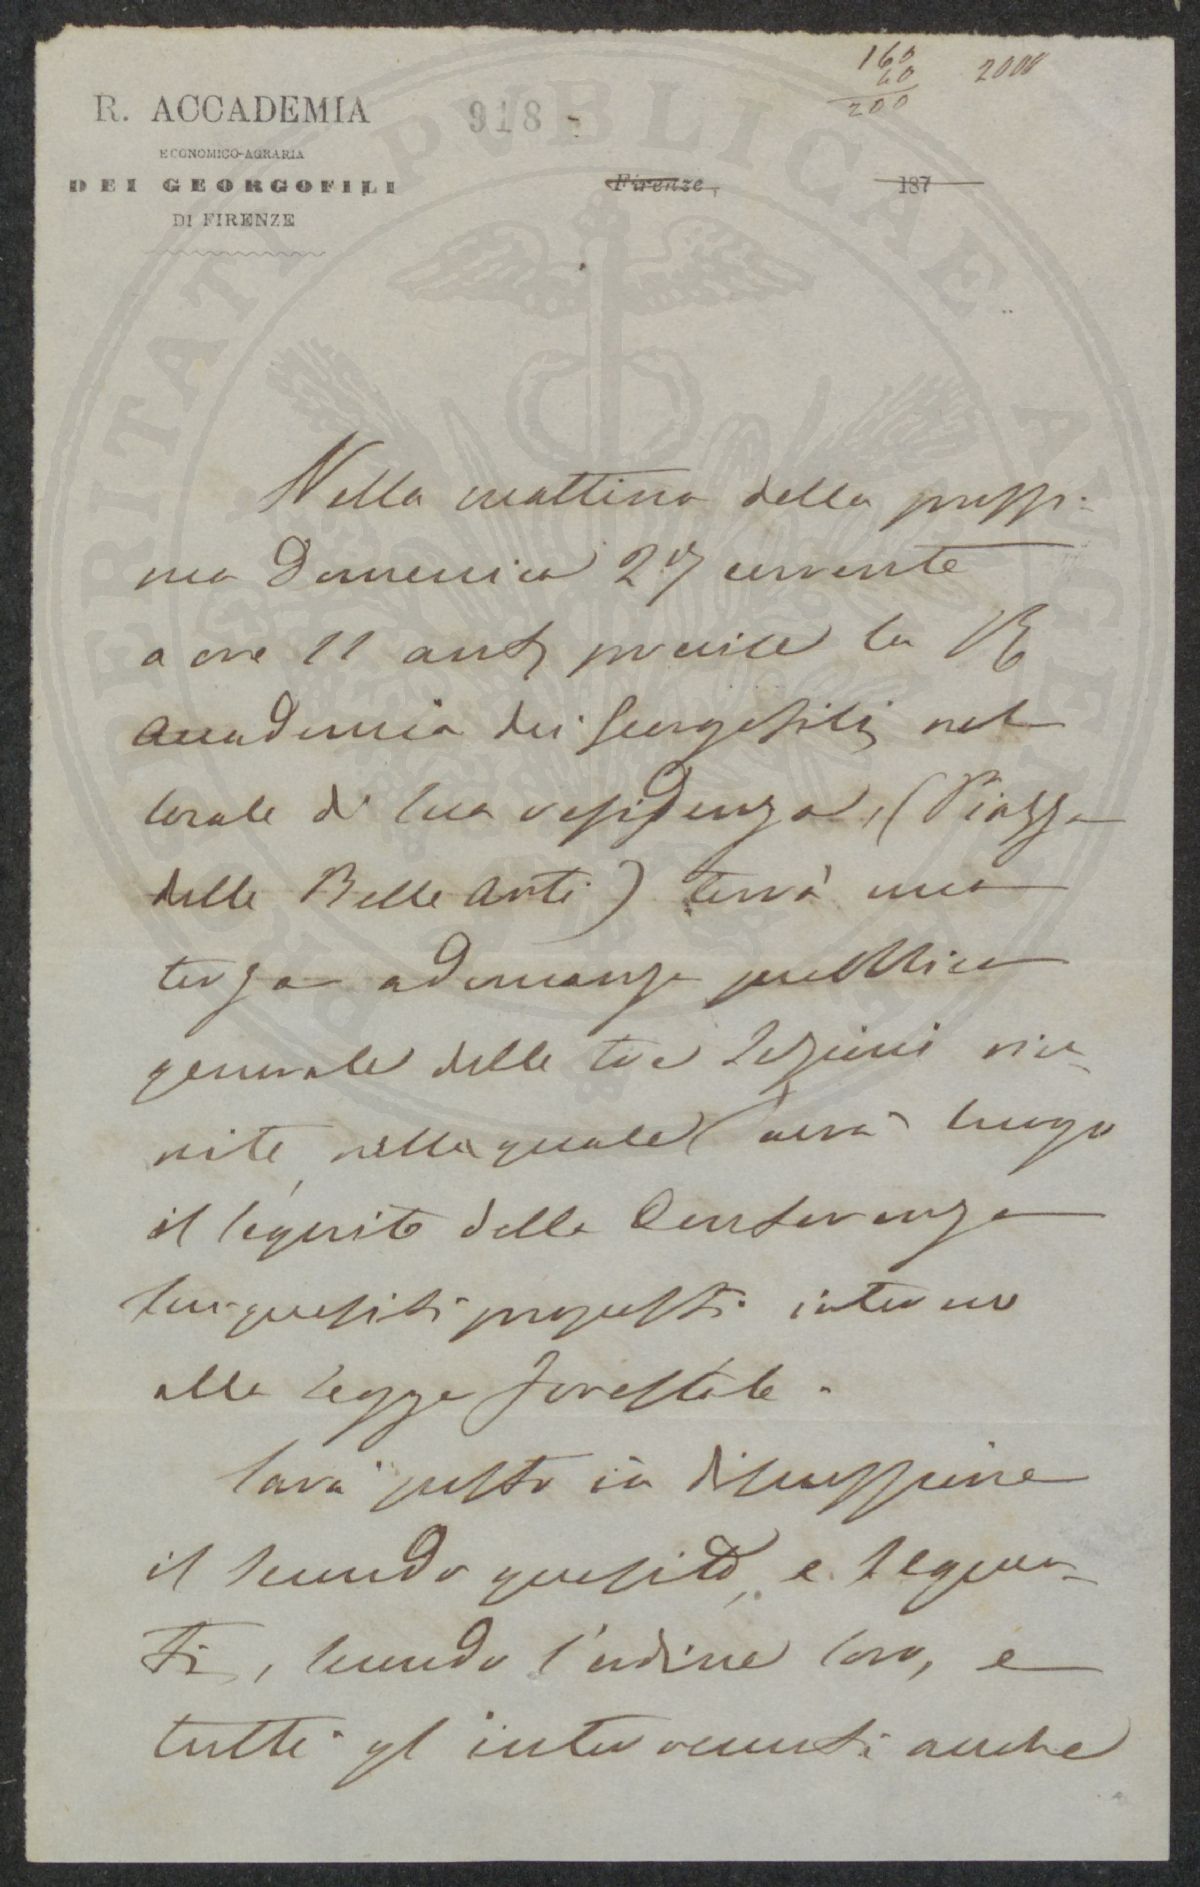 160
40
200
2000
R. ACCADEMIA
ECONOMICO-AGRARIA
DEI GEORGOFILI
DI FIRENZE
918 -
Firenze, 187
PROSPERITATI PUBLICAE AUGENDAE
Nella mattina della prossi-
ma Domenica 27 corrente
a ore 11 ant; precise la R
Accademia dei Georgofili, nel
locale di sua residenza, (Piazza
delle Belle Arti) terrà una
terza adunanza pubblica
generale delle tre Sezioni riu-
nite, nella quale avrà luogo
il seguito della Conferenza
sui quesiti proposti intorno
alla legge forestale.
Sarà posto in discussione
il secondo quesito, e seguen-
ti, secondo l'ordine loro, e
tutti gl'intervenuti anche